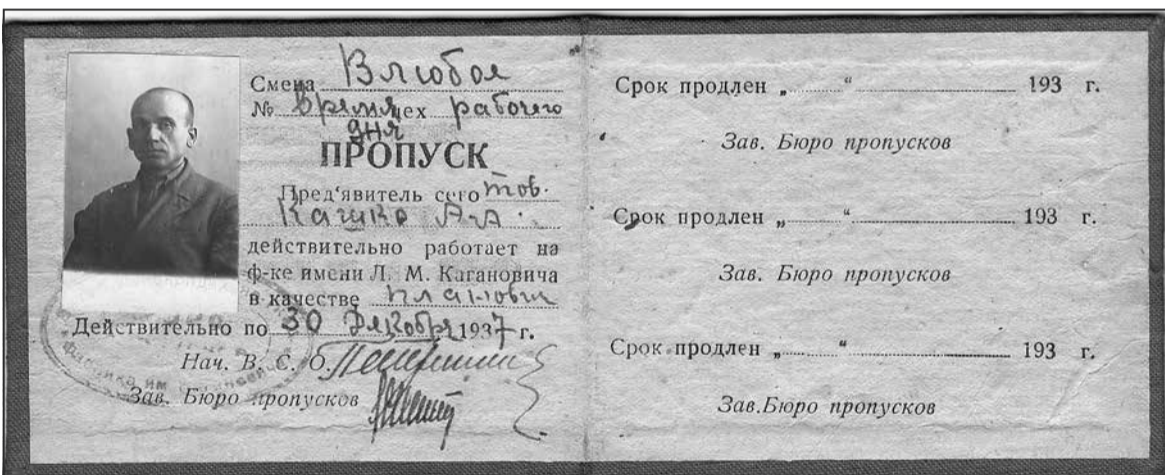 Смена В любое
№ время цех рабочего
дня
ПРОПУСК
Пред'явитель сего тов.
А. А.
действительно работает на
ф-ке имени Л. М. Кагановича
в качестве
Действительно по 30 Декабря 1937 г.
Нач. В. С. О.
Зав. Бюро пропусков
Срок продлен „ “ 193 г.
Зав. Бюро пропусков
Срок продлен „ “ 193 г.
Зав. Бюро пропусков
Срок продлен „ “ 193 г.
Зав.Бюро пропусков